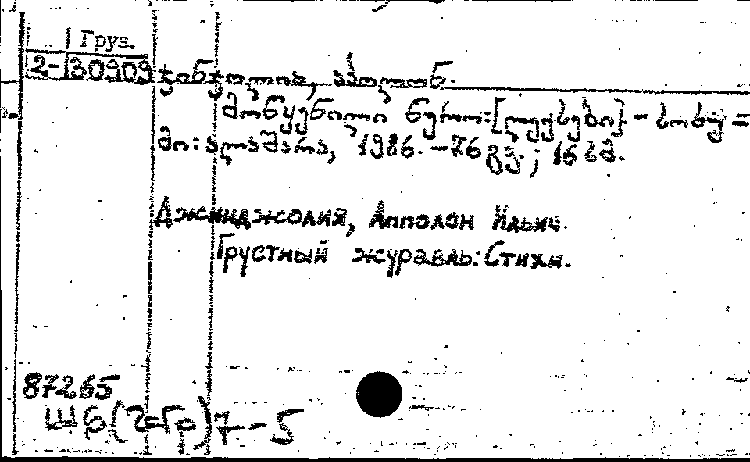 Груз.
2-30909 ჯინჯოლია, აპოლონ.
მოწყენილი წერო: [ლექსები]. - სოხუ=
მი: ალაშარა, 1986. - 76 გვ.; 16 სმ.
Джинджолия, Апполон Ильич.
Грустный журавль: Стихи.
87265
Ш6(2=Гр)7-5